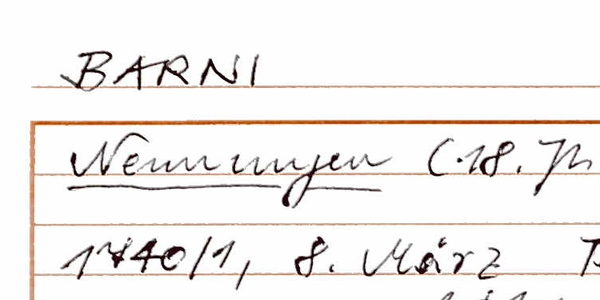 BARNI
Nennungen (.18. Jh
1740/1, 8. März